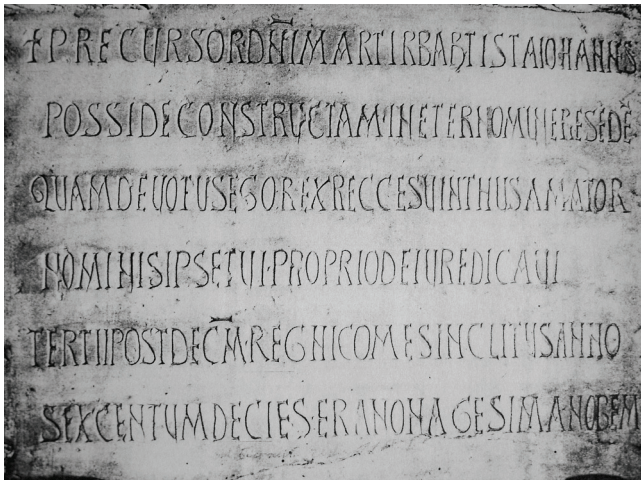 + PRECURSOR DNI MARTIR BABTISTA IOHANNES
POSSIDE CONSTRUCTAM · IN ETERNO MUNERE SEDE
QUAM DEVOTUS EGO REX RECCESVINTHUS AMATOR
NOMINIS IPSE TUI · PROPRIO DE IURE DICAVI
TERTII POST DECM · REGNI COMES INCLITUS ANNO
SEXCENTUM DECIES · ERA NONAGESIMA NOBEM